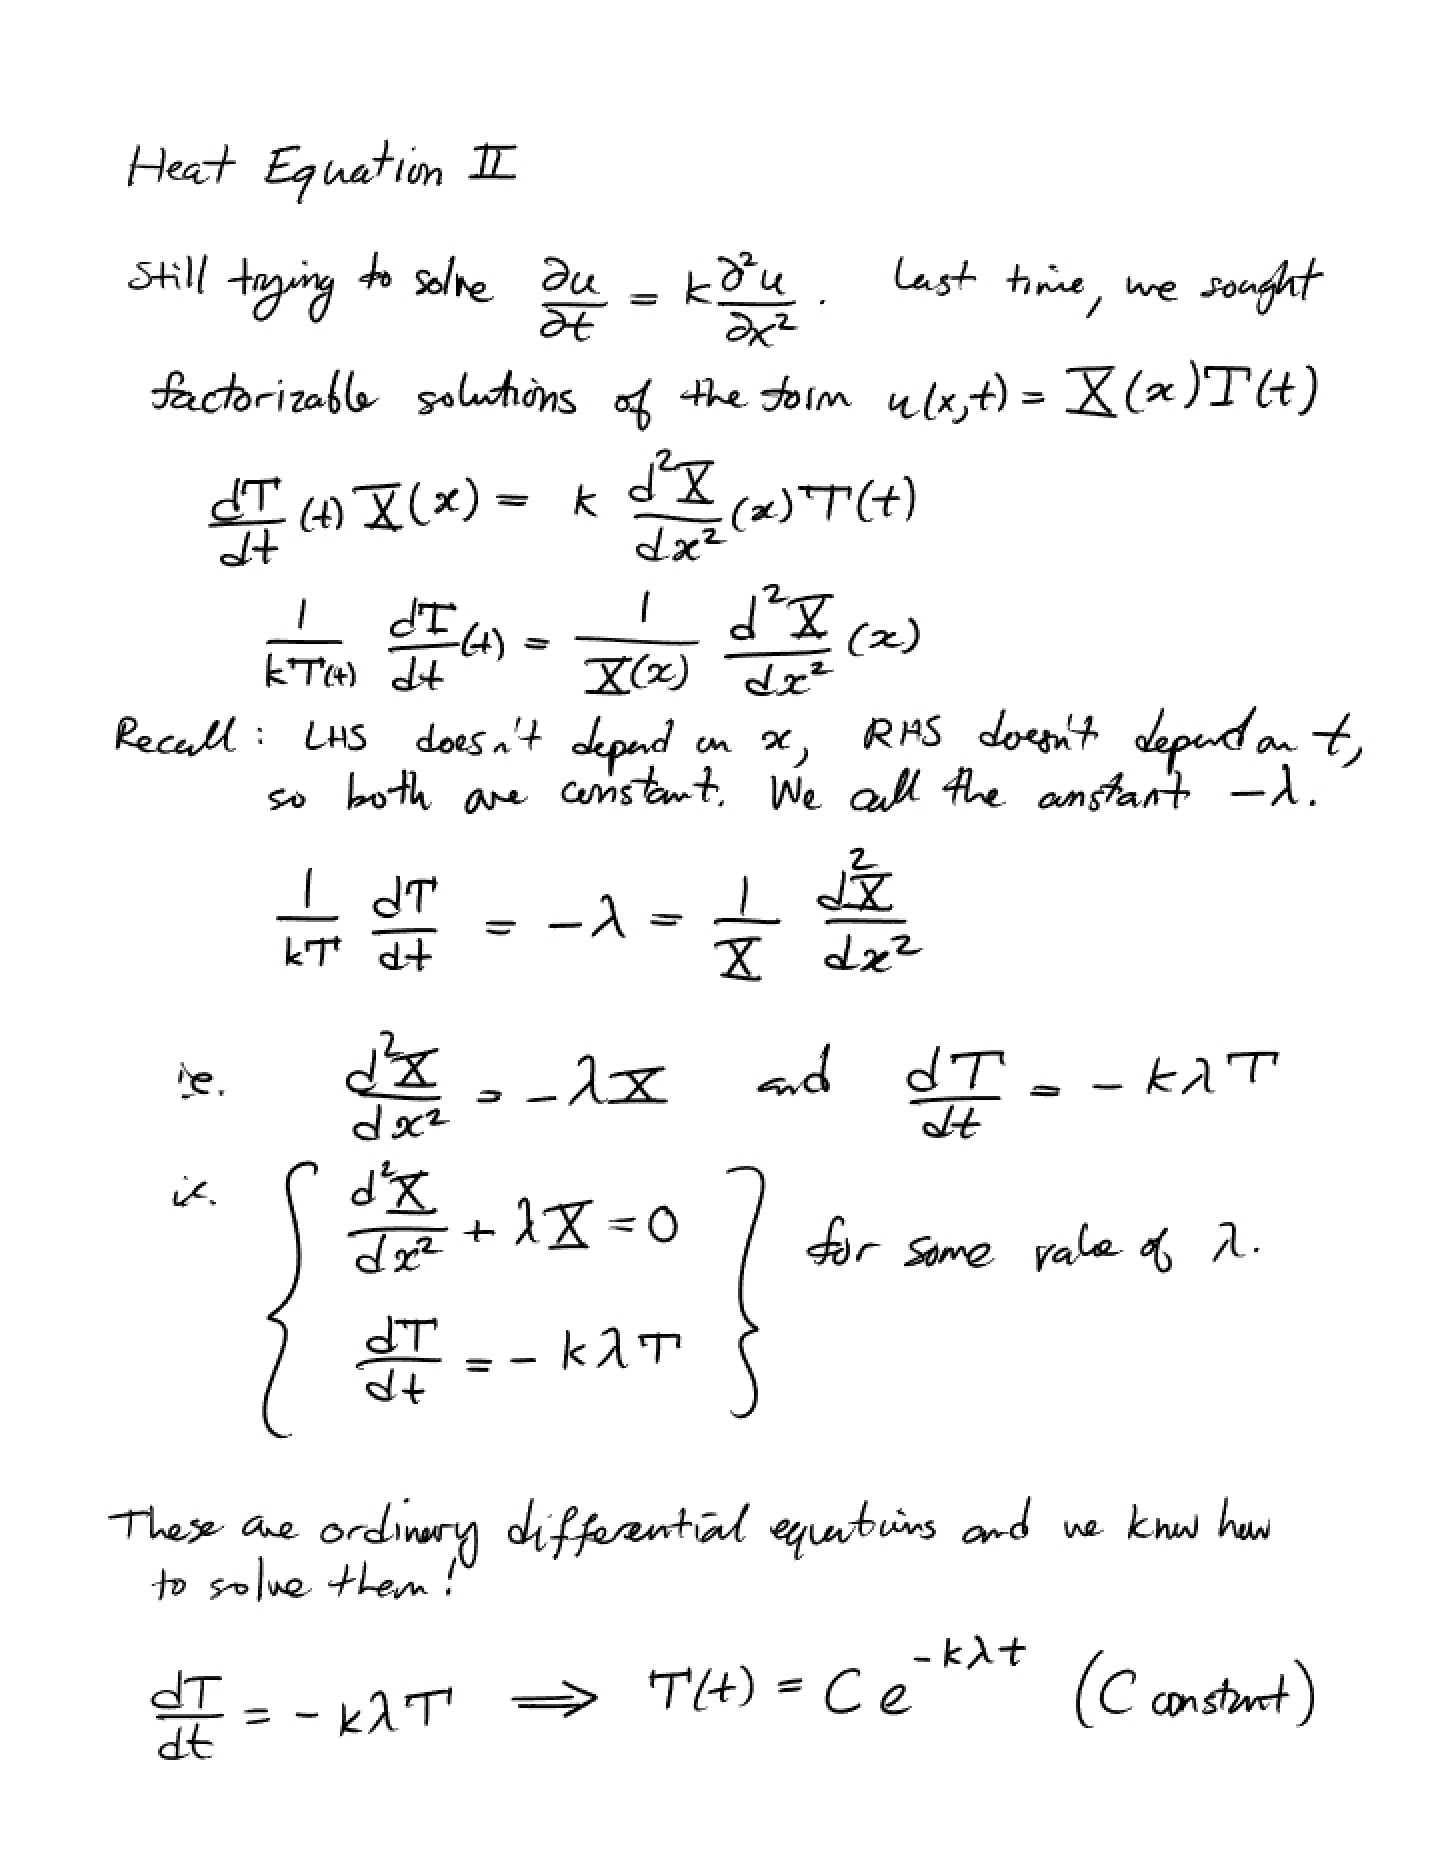 Heat Equation II
Still trying to solve ∂u/∂t = k ∂²u/∂x². Last time, we sought
factorizable solutions of the form u(x,t) = X(x)T(t)
dT/dt (t) X(x) = k d²X/dx² (x) T(t)
1/kT(t) dT/dt (t) = 1/X(x) d²X/dx² (x)
Recall: LHS doesn't depend on x, RHS doesn't depend on t,
so both are constant. We call the constant -λ.
1/kT dT/dt = -λ = 1/X d²X/dx²
ie. d²X/dx² = -λX and dT/dt = -kλT
ie. { d²X/dx² + λX = 0 } for some value of λ.
dT/dt = -kλT
These are ordinary differential equations and we know how
to solve them!
dT/dt = -kλT ⟹ T(t) = C e^{-kλt} (C constant)